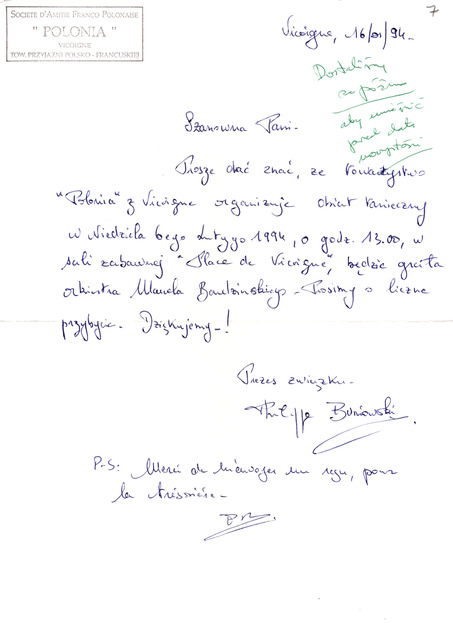 SOCIETE D'AMITIE FRANCO POLONAISE
" POLONIA "
VICOIGNE
TOW. PRZYJAZNI POLSKO - FRANCUSKIEJ
7
Vicoigne, 16/01/94.
Dostaliśmy
za późno
aby umieścić
przed datą
Szanowna Pani.
Proszę dać znać, ze Towarzystwo
"Polonia" z Vicoigne organizuje obiad taneczny
w Niedziela 6ego Lutego 1994, o godz. 13.00, w
sali zabawnej "Place de Vicoigne", będzie grała
orkiestra Prosimy o liczne
przybycie. Dziękujemy-!
Prezes związku-
Philippe
P-S: Merci de m'envoyer un reçu, pour
la trésorière-